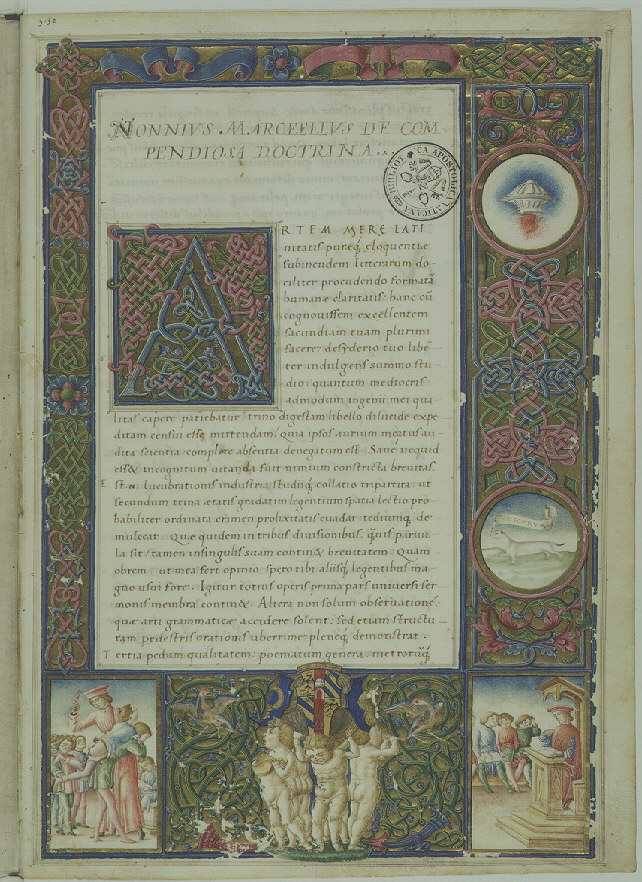 NONNIVS MARCELLVS DE COM
PENDIOSA DOCTRINA
ARTEM MERE LATI
nitatis pureq; eloquentiæ
subincudem litterarum do
ciliter procudendo formatā
humanæ claritatis: hanc cū
cognouissem excellentem
facundiam tuam plurimi
facere: desyderio tuo libē
ter indulgens summo stu
dio: quantum mediocris
admodum ingenii mei qua
litas capere patiebatur: trino digestam libello dilucide expe
ditam censui esse mittendam. Quia ipsos aurium meatus au
dita scientia complere absentia denegatum est. Sane nequid
ess& incognitum: uitanda fuit nimium constricta breuitas.
lucubrationis industria studiiq; collatio tripartita: ut
secundum trina ætatis gradatim legentium spatia lectio pro
babiliter ordinata crimen prolixitatis euadat: tediumq; de
mulceat. Quæ quidem in tribus diuisionibus, quis parua
la sit: tamen in singulis suam contin& breuitatem. Quam
obrem, ut mea fert opinio, spero tibi aliisq; legentibus ma
gno usui fore. Igitur totius operis prima pars uniuersi ser
monis membra contin&. Altera non solum obseruationes
quæ arti grammaticæ accidere solent: sed etiam structu
ram pedestris orationis uberrime pleneq; demonstrat.
Tertia pedum qualitatem, poematum genera, metrorūq;